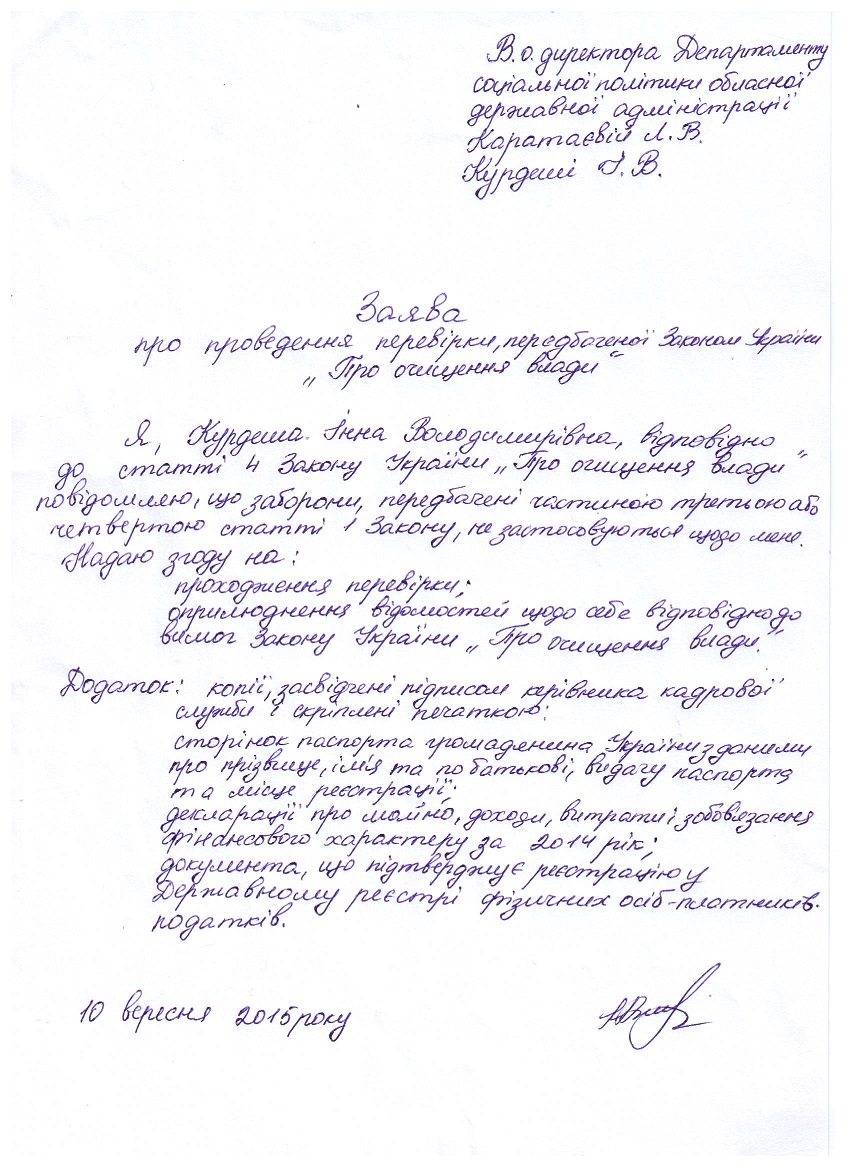 В.о. директора Департаменту
соціальної політики обласної
державної адміністрації
Каратаєвій Л.В.
Курдеші І.В.
Заява
про проведення перевірки, передбаченої Законом України
„Про очищення влади“
Я, Курдеша Інна Володимирівна, відповідно
до статті 4 Закону України „Про очищення влади“
повідомляю, що заборони, передбачені частиною третьою або
четвертою статті 1 Закону, не застосовуються щодо мене.
Надаю згоду на:
проходження перевірки;
оприлюднення відомостей щодо себе відповідно до
вимог Закону України „Про очищення влади.“
Додаток: копії, засвідчені підписом керівника кадрової
служби і скріплені печаткою:
сторінок паспорта громадянина України з даними
про прізвище, ім'я та по батькові, видачу паспорта
та місце реєстрації;
декларації про майно, доходи, витрати і зобов'язання
фінансового характеру за 2014 рік;
документа, що підтверджує реєстрацію у
Державному реєстрі фізичних осіб-платників
податків.
10 вересня 2015 року